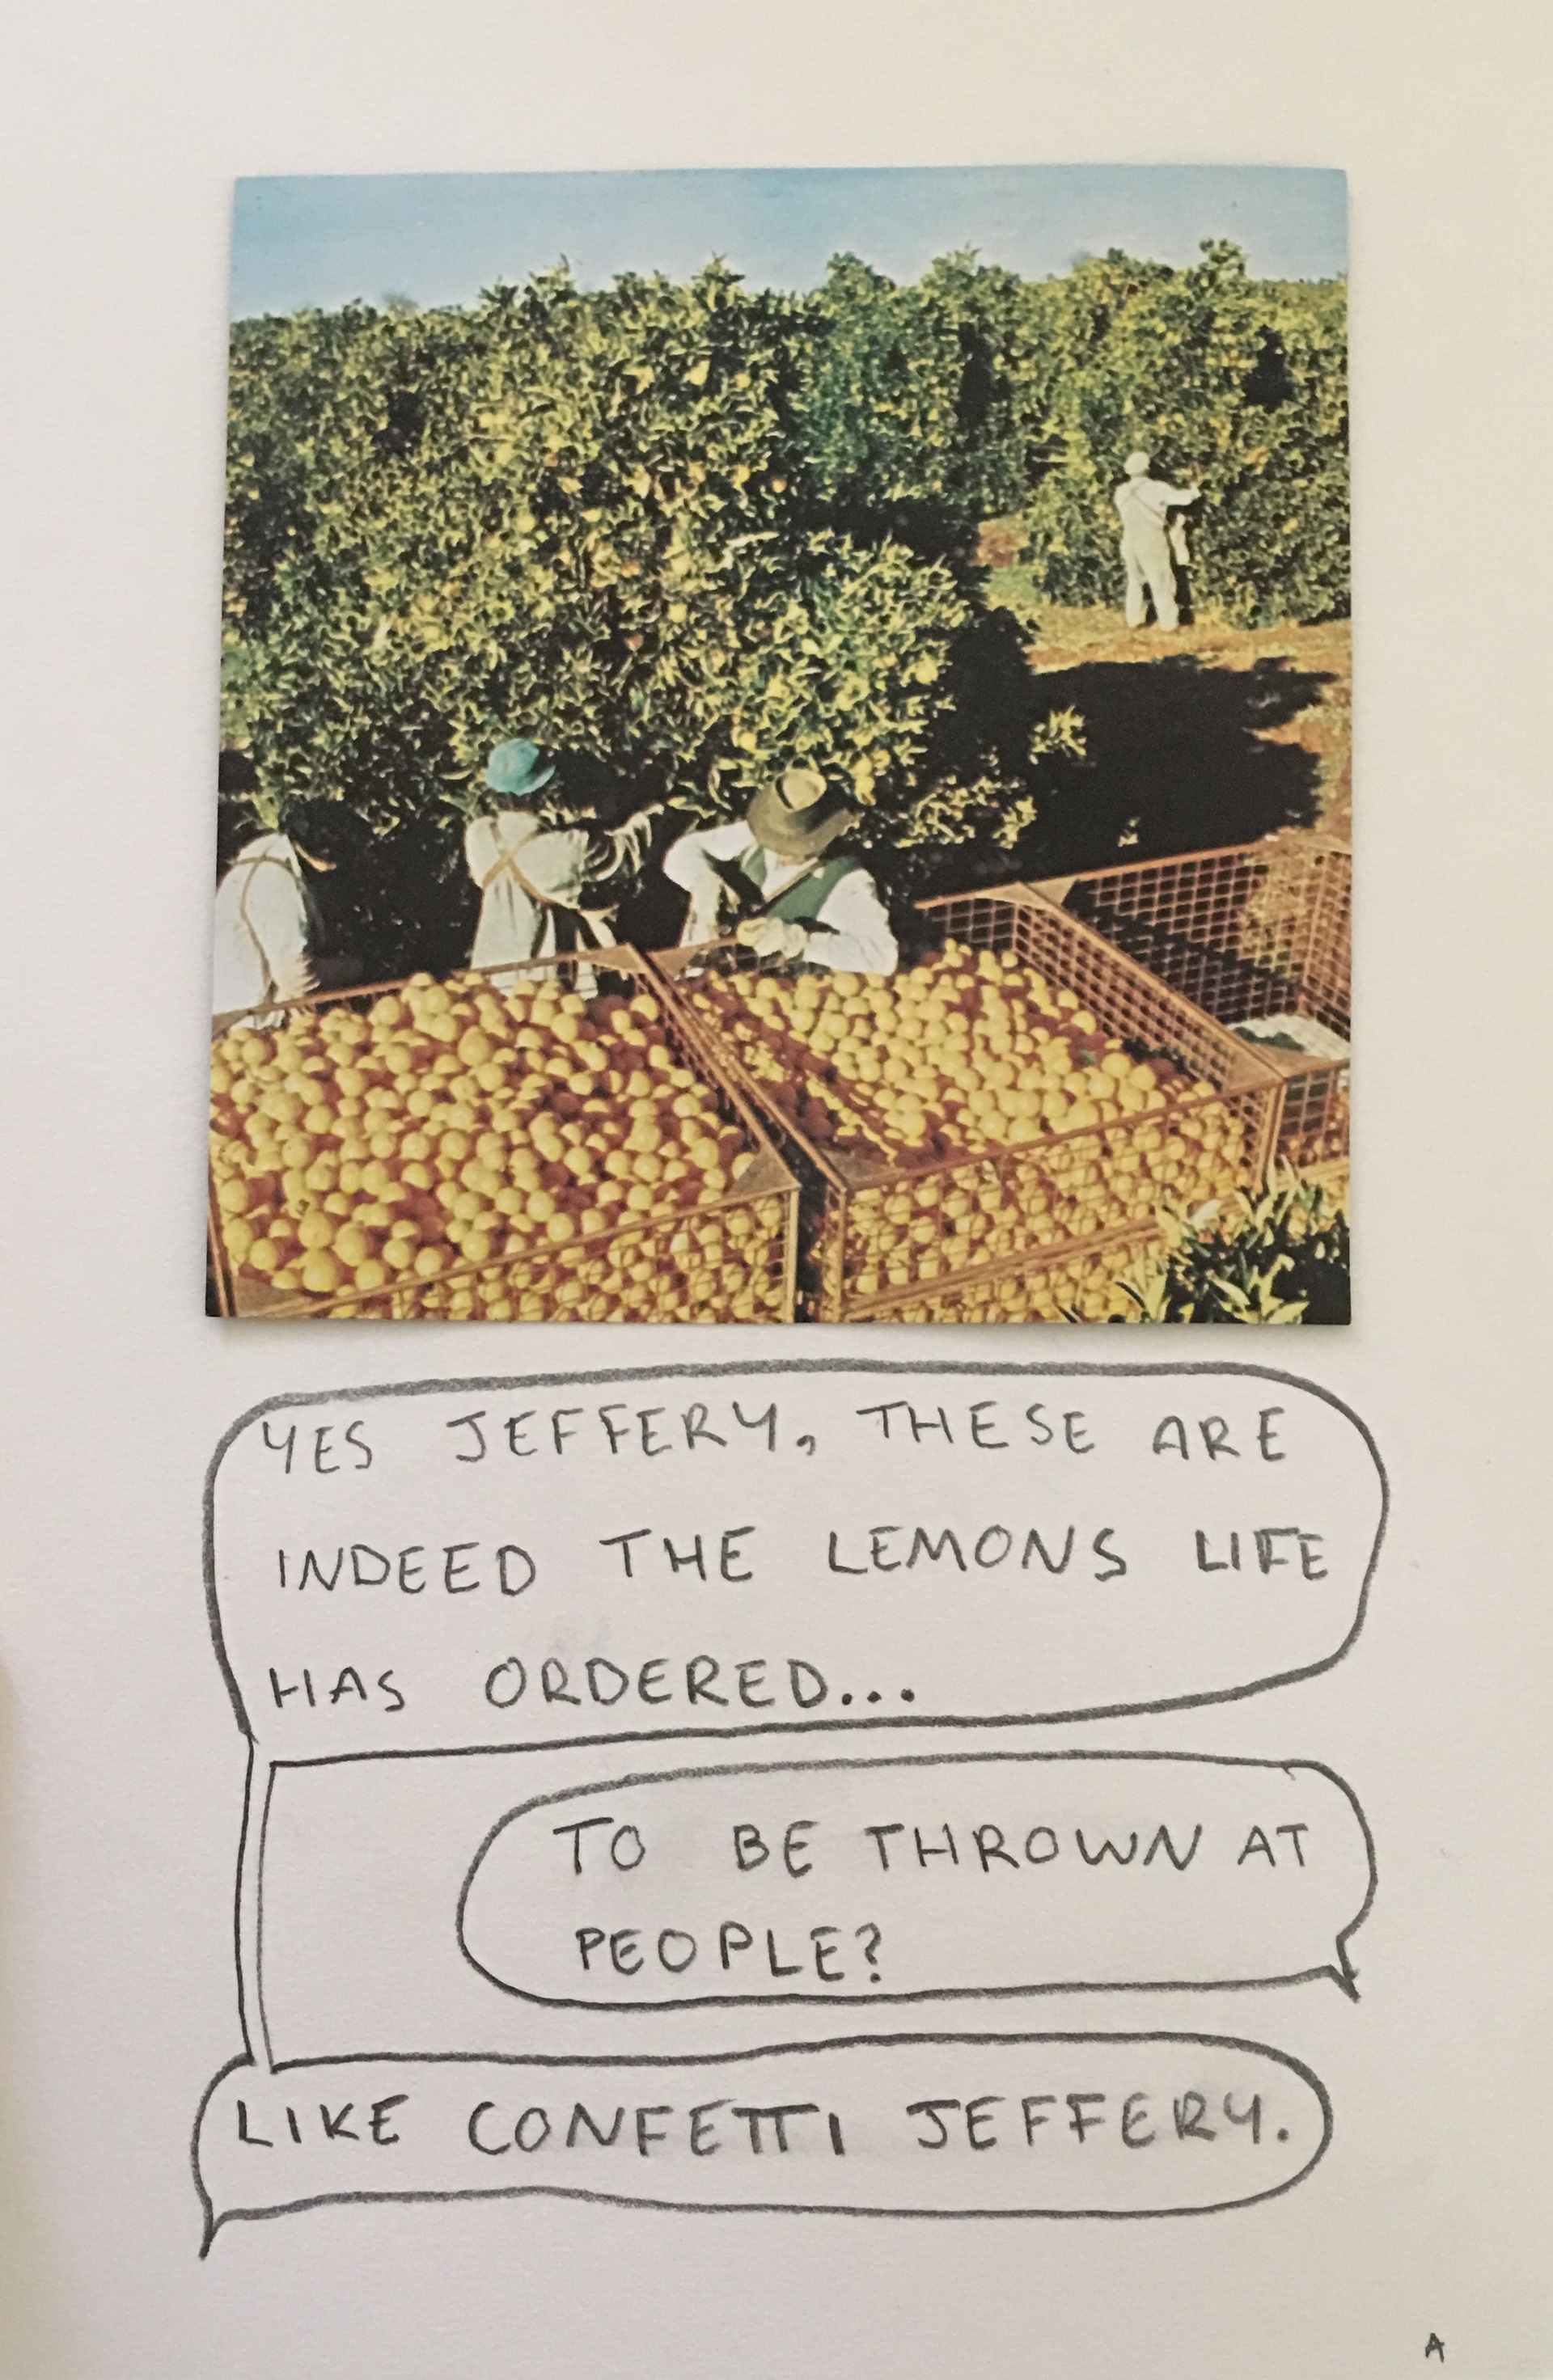 YES JEFFERY, THESE ARE
INDEED THE LEMONS LIFE
HAS ORDERED...
TO BE THROWN AT
PEOPLE?
LIKE CONFETTI JEFFERY.
A